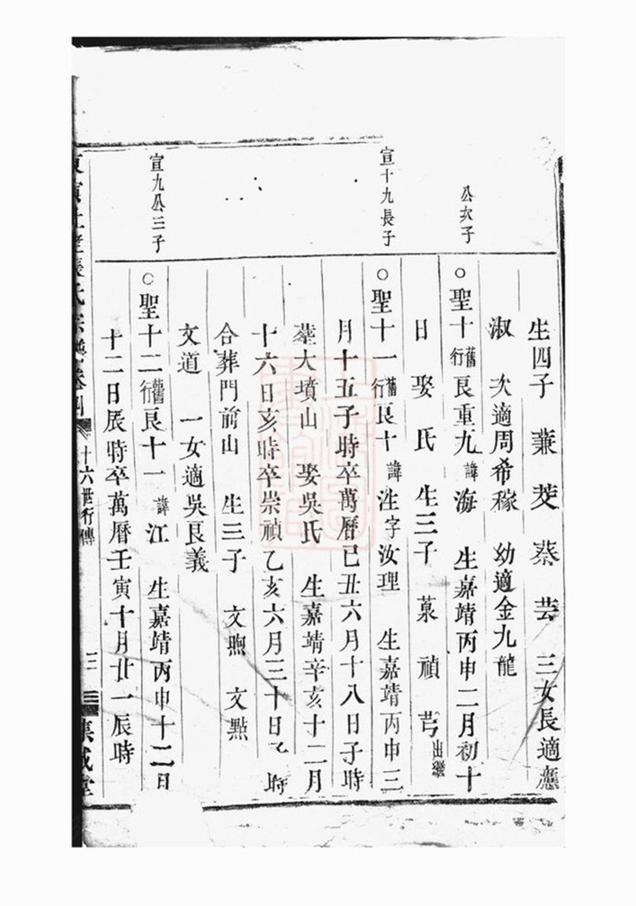 生四子 蒹 茭 蔡 芸 三女長適應
淑 次適周希稼 幼適金九龍
公次子
○聖十舊行良重九諱海 生嘉靖丙申二月初十
日 娶 氏 生三子 菉 禎 芎出繼
宣十九長子
○聖十一舊行良十諱泩字汝理 生嘉靖丙申三
月十五子時卒萬曆己丑六月十八日子時
葬大墳山 娶吳氏 生嘉靖辛亥十二月
十六日亥時卒崇禎乙亥六月三十日子時
合葬門前山 生三子 文煦 文點
文道 一女適吳良義
宣九公三子
○聖十二舊行良十一諱江 生嘉靖丙申十二日
十二日辰時卒萬曆壬寅十月廿一辰時
張氏宗譜卷 十六世行傳 三 集成堂